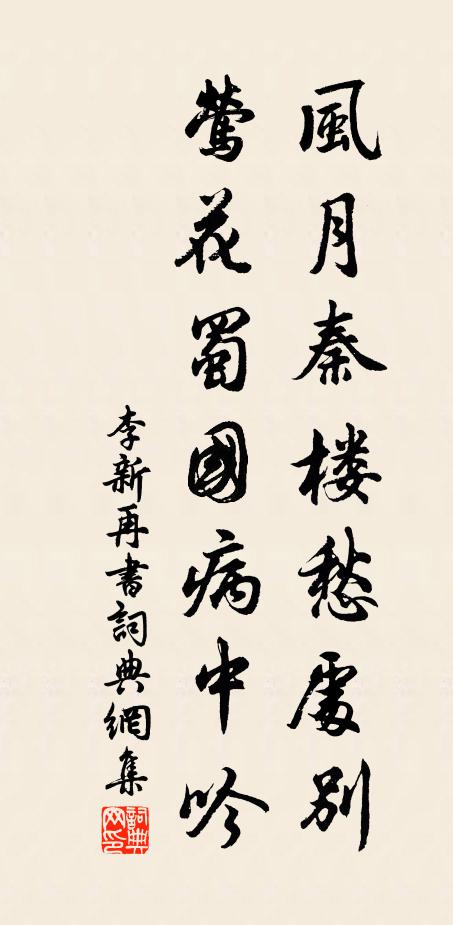 風月秦楼愁處別
鶯花蜀國病中吟
李新再書詞典網集
詞典網印